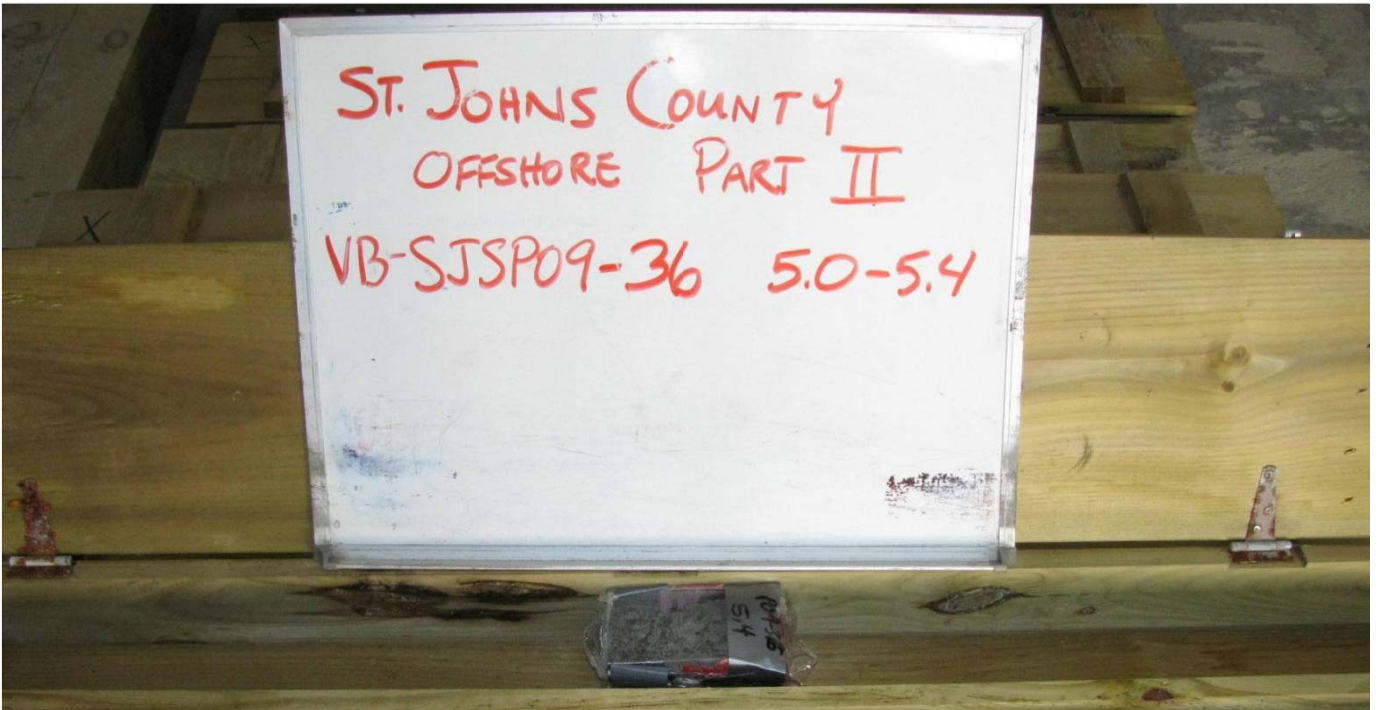 ST. JOHNS COUNTY
OFFSHORE PART II
VB-SJSP09-36 5.0-5.4
X
X
5.4